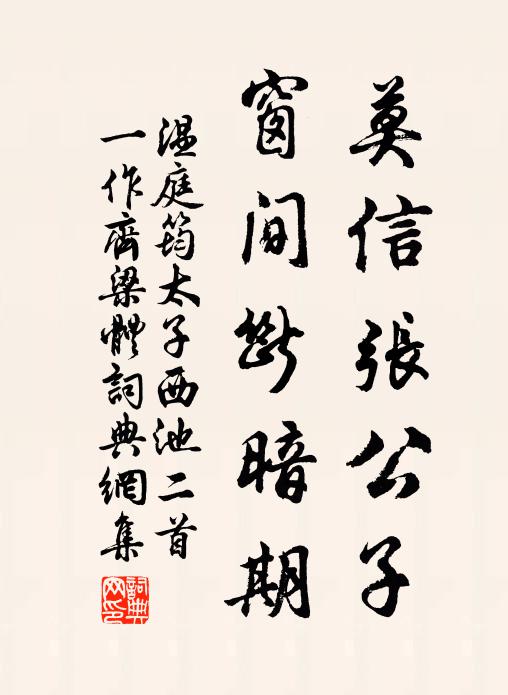 莫信張公子
窗間斷暗期
溫庭筠太子西池二首
一作齊梁體詞典網集
詞典網印